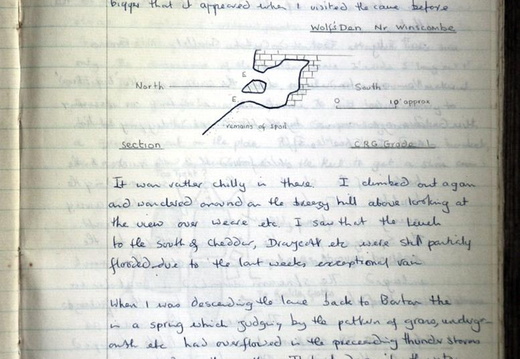 bigger that it appeared when I visited the cave before
Wolf's Den Nr Winscombe
E
North
South
E
0 10' approx
remains of spoil
Section
CRG Grade 1
It was rather chilly in there. I climbed out again
and wandered around on the breezy hill above looking at
the view over Weare etc. I saw that the land
to the south of Cheddar, Draycott etc were still partially
flooded due to the last weeks exceptional rain
When I was descending the lane back to Barton the
in a spring which judging by the pattern of grass, underg-
owth etc had overflowed in the preceeding thunder storms